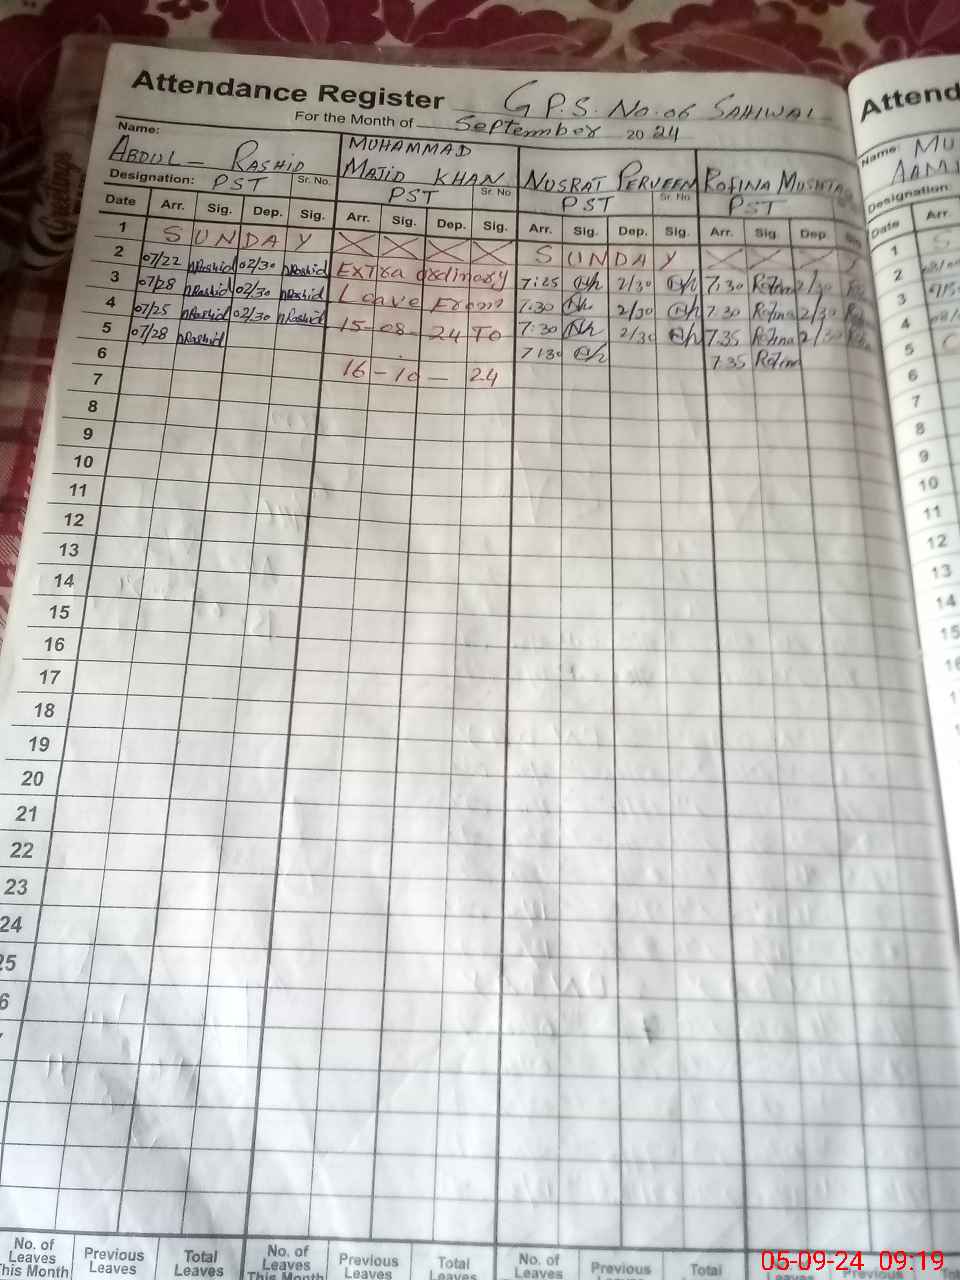 Attendance Register G.P.S. No. 06 SAHIWAL
For the Month of September 2024
Name: ABDUL-RASHID MUHAMMAD MAJID KHAN NUSRAT PERVEEN ROFINA
Designation: PST Sr. No. PST Sr. No PST Sr. No PST
Date Arr. Sig. Dep. Sig. Arr. Sig. Dep. Sig. Arr. Sig. Dep. Sig. Arr. Sig. Dep. Sig
1 SUNDAY SUNDAY
2 07/22 ARashid 02/30 ARashid Extra ordinary 7:25 2/30 7:30 Rofina 2/30
3 07/28 ARashid 02/30 ARashid Leave From 7:30 2/30 7:30 Rofina 2/30
4 07/25 ARashid 02/30 ARashid 15-08-24 TO 7:30 2/30 7:35 Rofina 2/30
5 07/28 ARashid 7:30 7:35 Rofina
6 16-10-24
7
8
9
10
11
12
13
14
15
16
17
18
19
20
21
22
23
24
25
No. of Leaves This Month Previous Leaves Total Leaves No. of Leaves This Month Previous Leaves Total Leaves No. of Leaves Previous Leaves Total
Attend
Name: MU
AAMI
Designation
Date Arr.
1 S
2
3
4
5
6
7
8
9
10
11
12
13
14
15
05-09-24 09:19